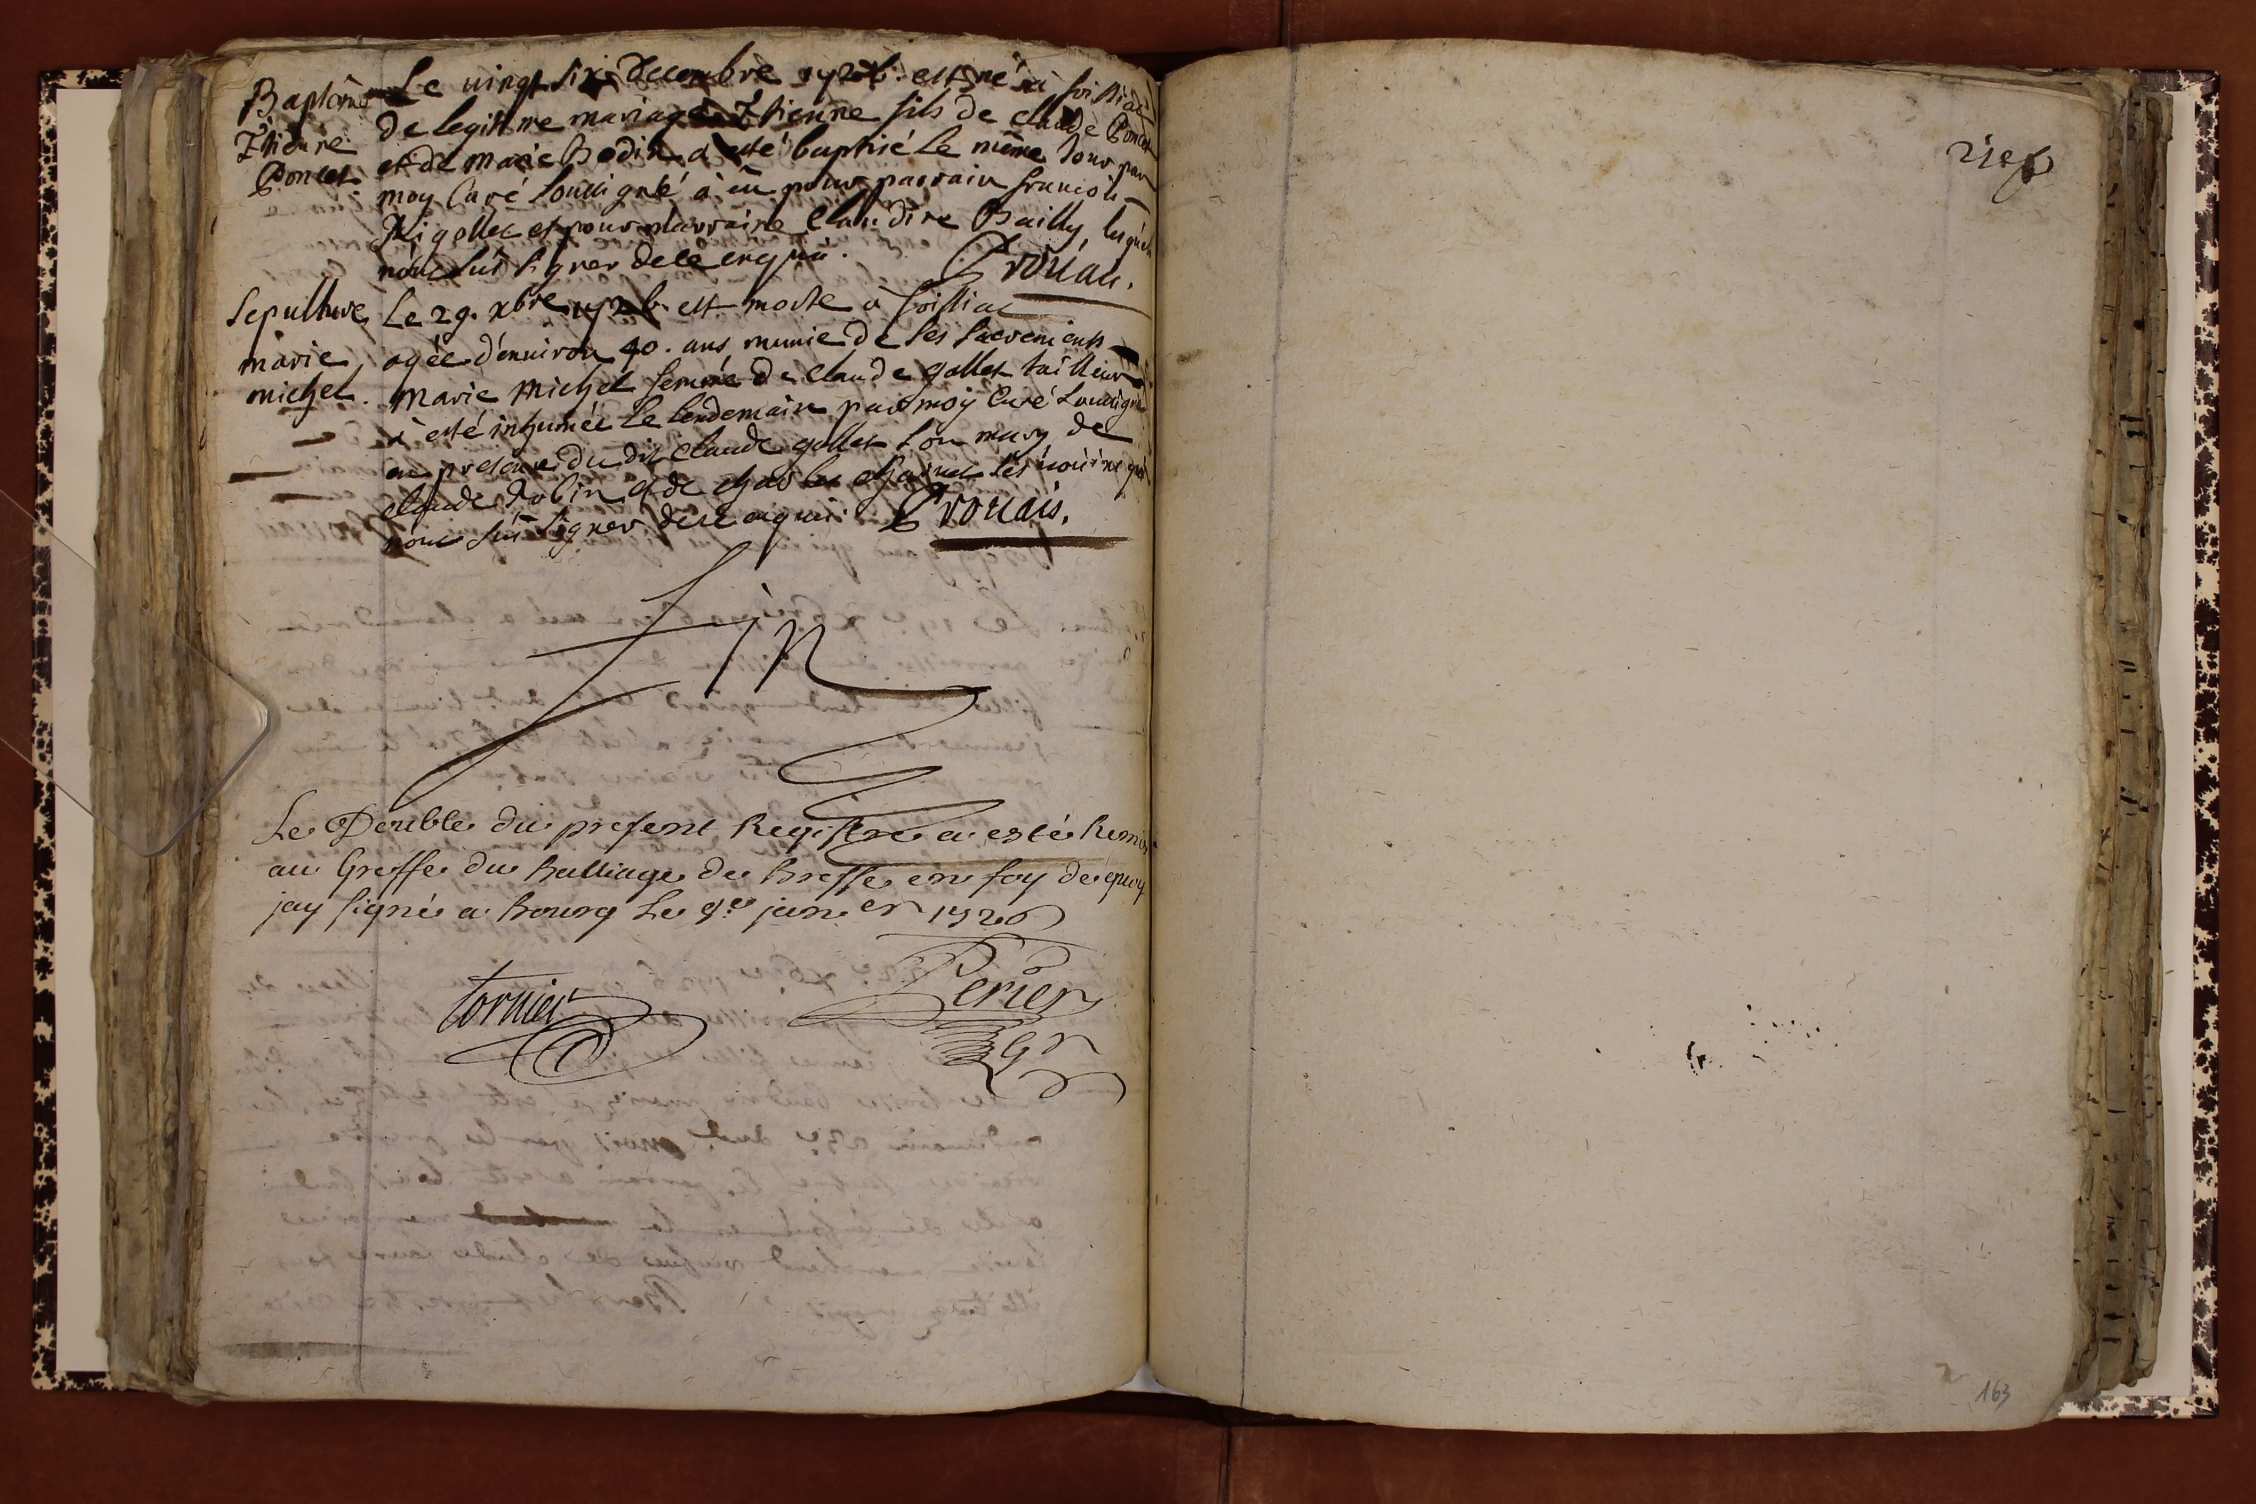 Baptême
Ethienne
Poncet
Le vingt six decembre 1726. est né à foissiat
de legitime mariage Ethienne fils de claude Poncet
et de Marie Bodin a esté baptisé le même Jour par
moy Curé soussigné à eu pour parrain françois
Rigollet et pour Marraine Claudine Bailly, lesquels
n'ont sût signer de ce enquis. Prouais.
Sepulture
marie
michel.
Le 29. xbre 1726. est morte à foissiat
agée d'environ 40. ans munie de ses sacremens
Marie Michel femme de claude gollet tailleur
à esté inhumée le lendemain par moy Curé soussigné
en presence du dit claude gollet son mary de
claude Robin et de charles
n'ont sût signer de ce enquis. Prouais.
Fin
Le Double du present Registre a esté Remis
au Greffe du balliage de bresse en foy de quoy
jay signé a bourg Le 9e janer 1726
tornier
Perier
Gr
163